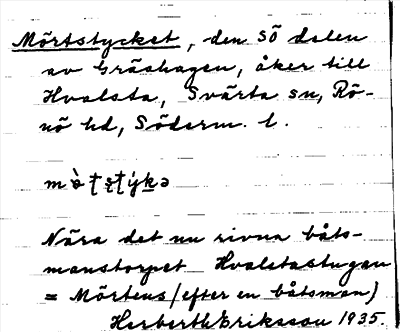 Mörtstycket, den SÖ delen
av Gräshagen, åker till
Hvalsta, Svärta sn, Rö-
nö hd, Söderm. l.
Nära det nu rivna båts-
manstorpet Hvalstastugan
= Mörtens (efter en båtsman)
Herberth Eriksson 1935.